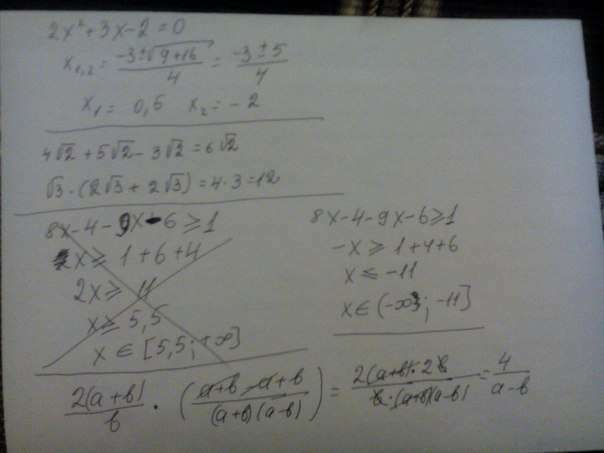 2x²+3x-2=0
x₁,₂ = (-3±√(9+16))/4 = (-3±5)/4
x₁ = 0,5 x₂ = -2
4√2 + 5√2 - 3√2 = 6√2
√3 · (2√3 + 2√3) = 4·3 = 12
8x-4-9x-6 ≥ 1
x ≥ 1+6+4
2x ≥ 11
x ≥ 5,5
x ∈ [5,5; +∞]
8x-4-9x-6 ≥ 1
-x ≥ 1+4+6
x ≤ -11
x ∈ (-∞; -11]
2(a+b)/b · ((a+b-a+b)/((a+b)(a-b))) = (2(a+b)·2b)/(b·(a+b)(a-b)) = 4/(a-b)